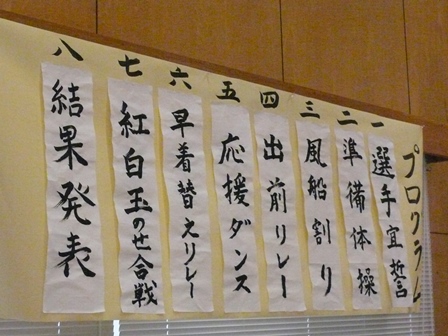 プログラム
一 選手宣誓
二 準備体操
三 風船割り
四 出前リレー
五 応援ダンス
六 早着替えリレー
七 紅白玉のせ合戦
八 結果発表